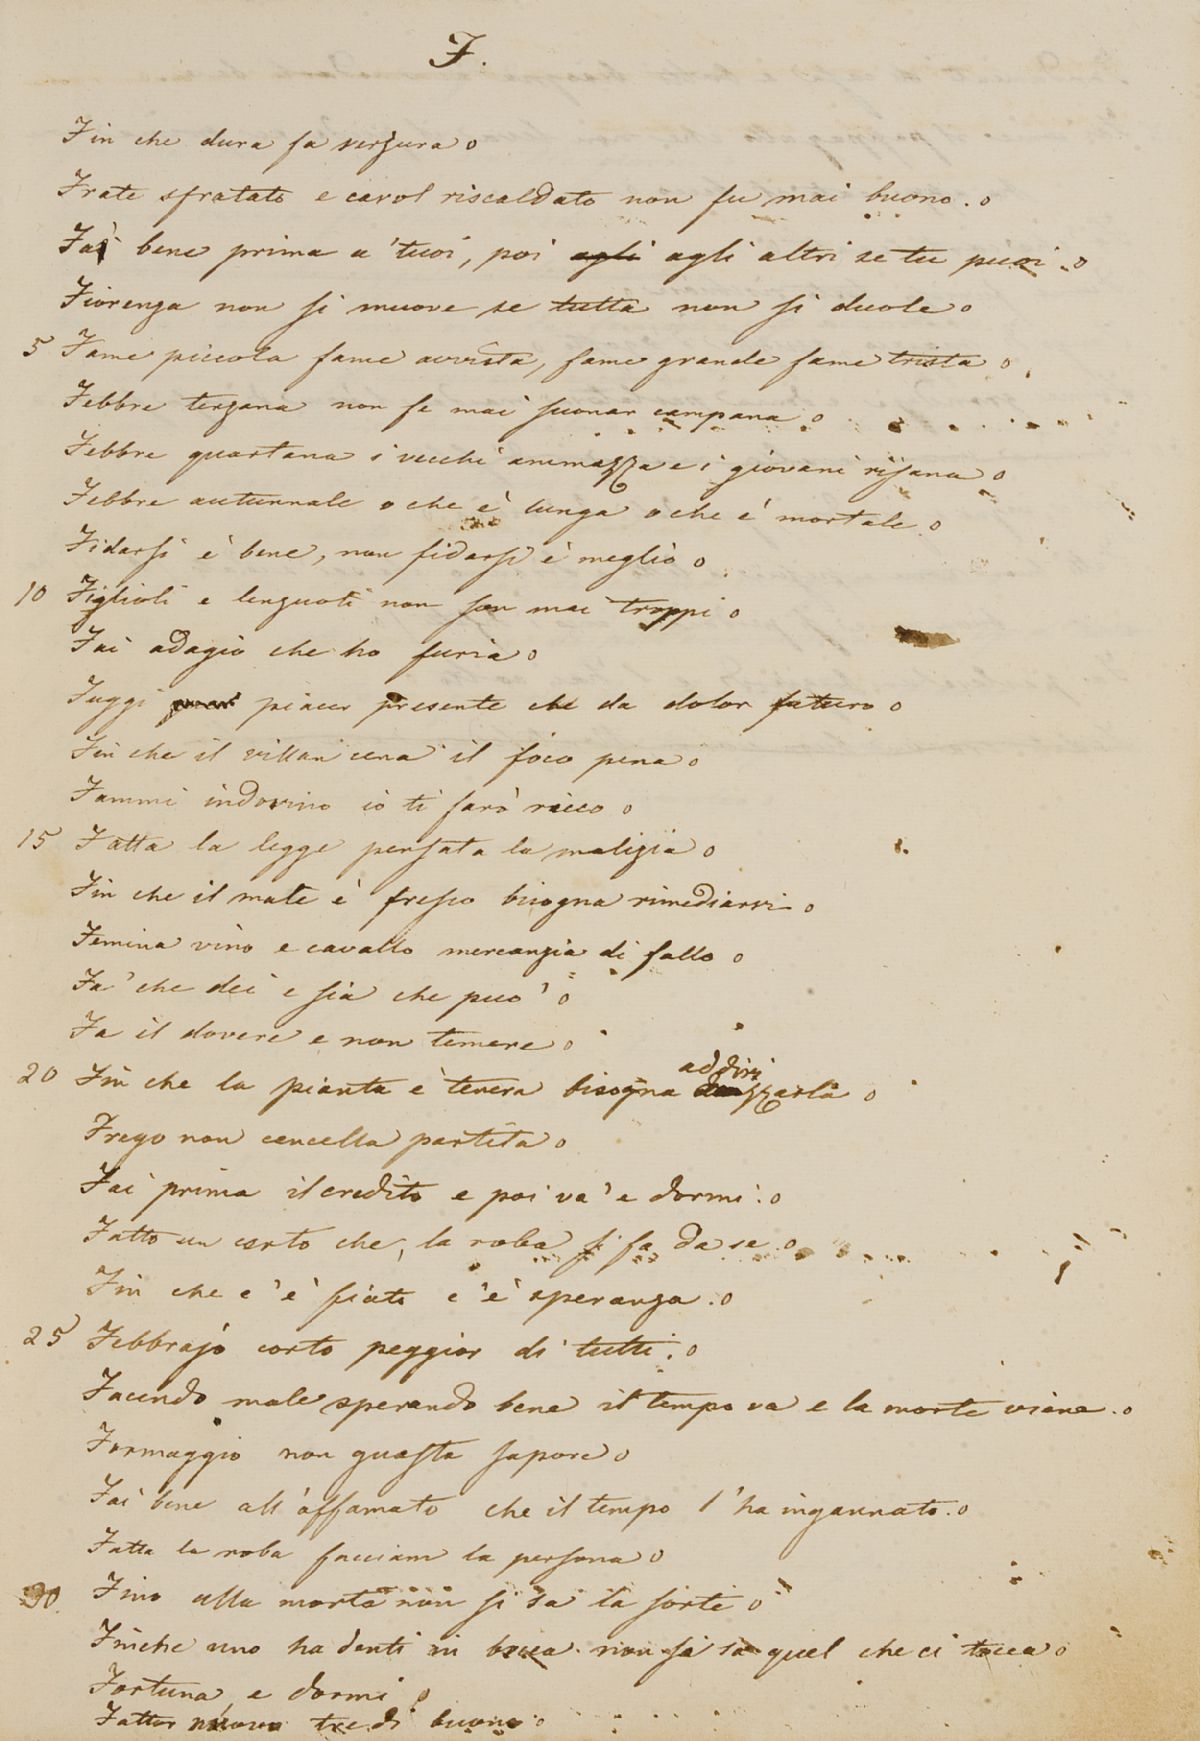 F.
Fin che dura fa verzura o
Frate sfratato e cavol riscaldato non fu mai buono. o
Fai bene prima a' tuoi, poi agli agli altri se tu puoi. o
Fiorenza non si muove se tutta non si duole o
5 Fame piccola fame avvista, fame grande fame trista o
Febbre terzana non fe mai suonar campana o
Febbre quartana i vecchi ammazza e i giovani risana o
Febbre autunnale o che è lunga o che è mortale o
Fidarsi è bene, non fidarsi è meglio o
10 Figlioli e lenzuoli non son mai troppi o
Fai adagio che ho furia o
Fuggi piacer presente che da dolor futuro o
Fin che il villan cena il foco pena o
Fammi indovino io ti farò ricco o
15 Fatta la legge pensata la malizia o
Fin che il male è fresco bisogna rimediarvi o
Femina vino e cavallo mercanzia di fallo o
Fa' che dei e sia che può' o
Fa il dovere e non temere o
20 Fin che la pianta è tenera bisogna addirizzarla o
Frego non cancella partita o
Fai prima il credito e poi va' e dormi. o
Fatto un certo che, la roba si fa da se. o
Fin che c'è fiato c'è speranza. o
25 Febbrajo corto peggior di tutti. o
Facendo male sperando bene il tempo va e la morte viene. o
Formaggio non guasta sapore o
Fai bene all'affamato che il tempo l'ha ingannato. o
Fatta la roba facciam la persona o
30. Fino alla morte non si sa la sorte o
Finche uno ha denti in bocca non si sa quel che ci tocca o
Fortuna e dormi o
Fattor nuovo tre dì buono o